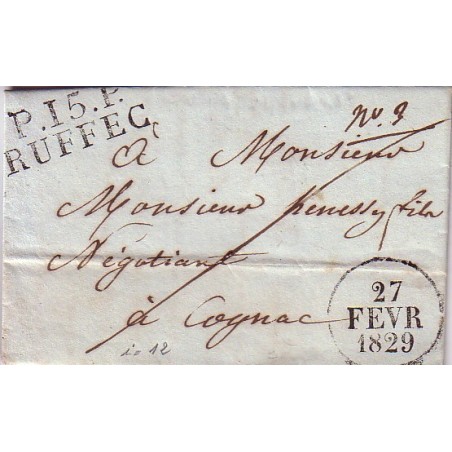 P.15.P.
RUFFEC
no. 3
à Monsieur
Monsieur henessy fils
Négotiant
à Cognac
27
FEVR
1829
io 12